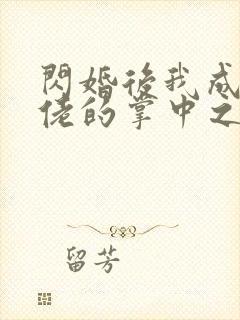 閃婚後我成
佬的掌中之
留芳